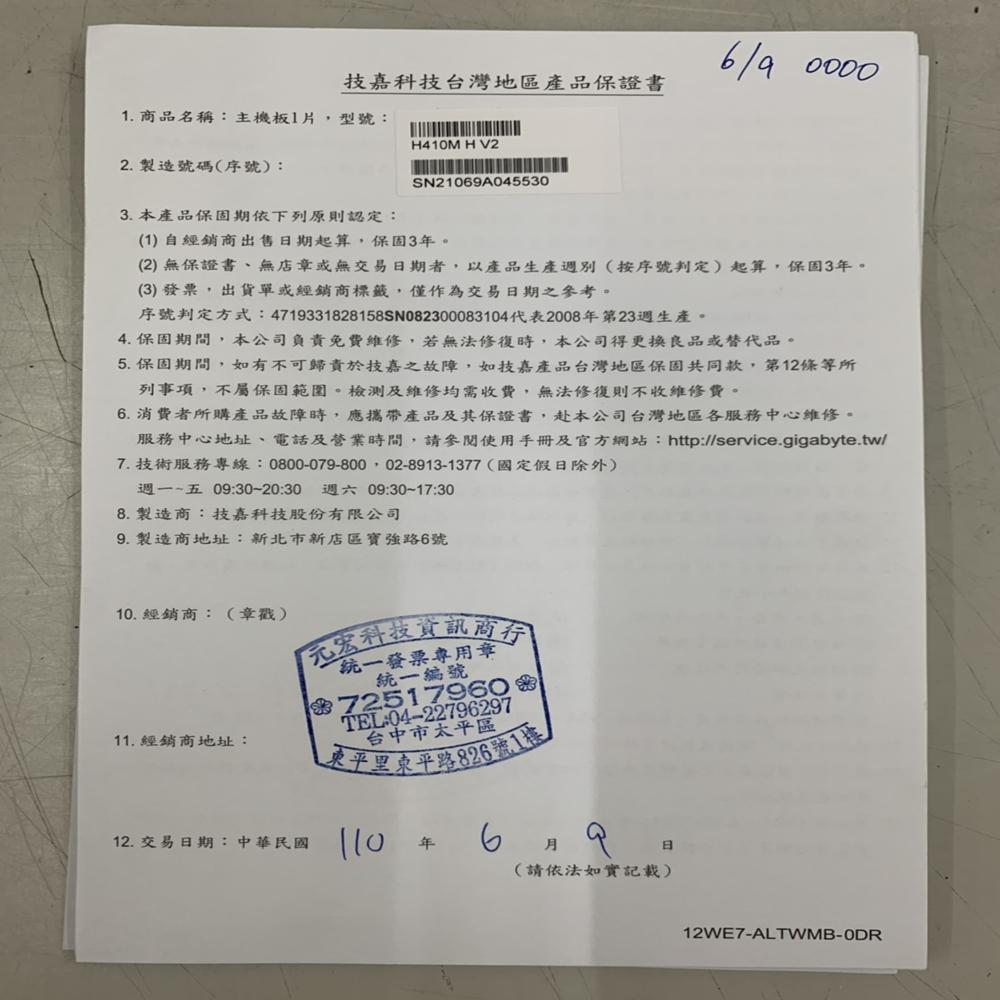 6/9 0000
技嘉科技台灣地區產品保證書
1. 商品名稱：主機板1片，型號：
H410M H V2
2. 製造號碼(序號)：
SN21069A045530
3. 本產品保固期依下列原則認定：
(1) 自經銷商出售日期起算，保固3年。
(2) 無保證書、無店章或無交易日期者，以產品生產週別（按序號判定）起算，保固3年。
(3) 發票，出貨單或經銷商標籤，僅作為交易日期之參考。
序號判定方式：4719331828158SN082300083104代表2008年第23週生產。
4. 保固期間，本公司負責免費維修，若無法修復時，本公司得更換良品或替代品。
5. 保固期間，如有不可歸責於技嘉之故障，如技嘉產品台灣地區保固共同款，第12條等所
列事項，不屬保固範圍。檢測及維修均需收費，無法修復則不收維修費。
6. 消費者所購產品故障時，應攜帶產品及其保證書，赴本公司台灣地區各服務中心維修。
服務中心地址、電話及營業時間，請參閱使用手冊及官方網站：http://service.gigabyte.tw/
7. 技術服務專線：0800-079-800，02-8913-1377（國定假日除外）
週一~五 09:30~20:30 週六 09:30~17:30
8. 製造商：技嘉科技股份有限公司
9. 製造商地址：新北市新店區寶強路6號
10. 經銷商：（章戳）
元宏科技資訊商行
統一發票專用章
統一編號
72517960
TEL:04-22796297
台中市太平區
東平里東平路826號1樓
11. 經銷商地址：
12. 交易日期：中華民國 110 年 6 月 9 日
（請依法如實記載）
12WE7-ALTWMB-0DR